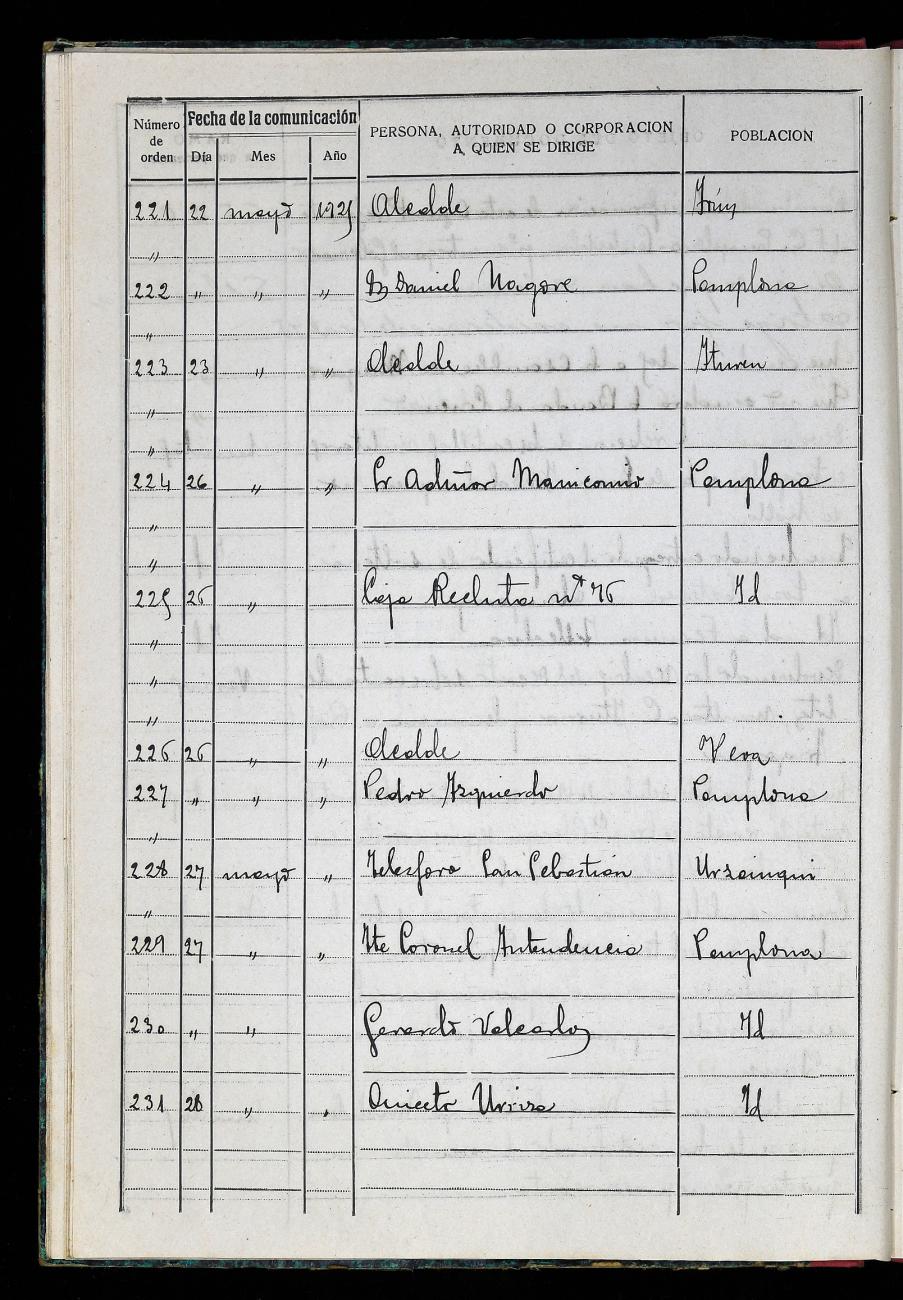 Número de orden | Fecha de la comunicación | PERSONA, AUTORIDAD O CORPORACION A QUIEN SE DIRIGE | POBLACION
Día | Mes | Año
221 22 mayo 1925 Alcalde Irún
"
222 " " " D Daniel Nagore Pamplona
"
223 23 " " Alcalde Ituren
"
"
224 26 " " Sr Admor Manicomio Pamplona
"
"
225 26 " Caja Recluta nº 76 Id
"
"
"
226 26 " " Alcalde Vera
227 " " " Pedro Izquierdo Pamplona
"
228 27 mayo " Telesforo San Sebastian Urzainqui
"
229 27 " " Tte Coronel Intendencia Pamplona
230 " " Gerardo Valcarlos Id
231 28 " " Aniceto Urriza Id